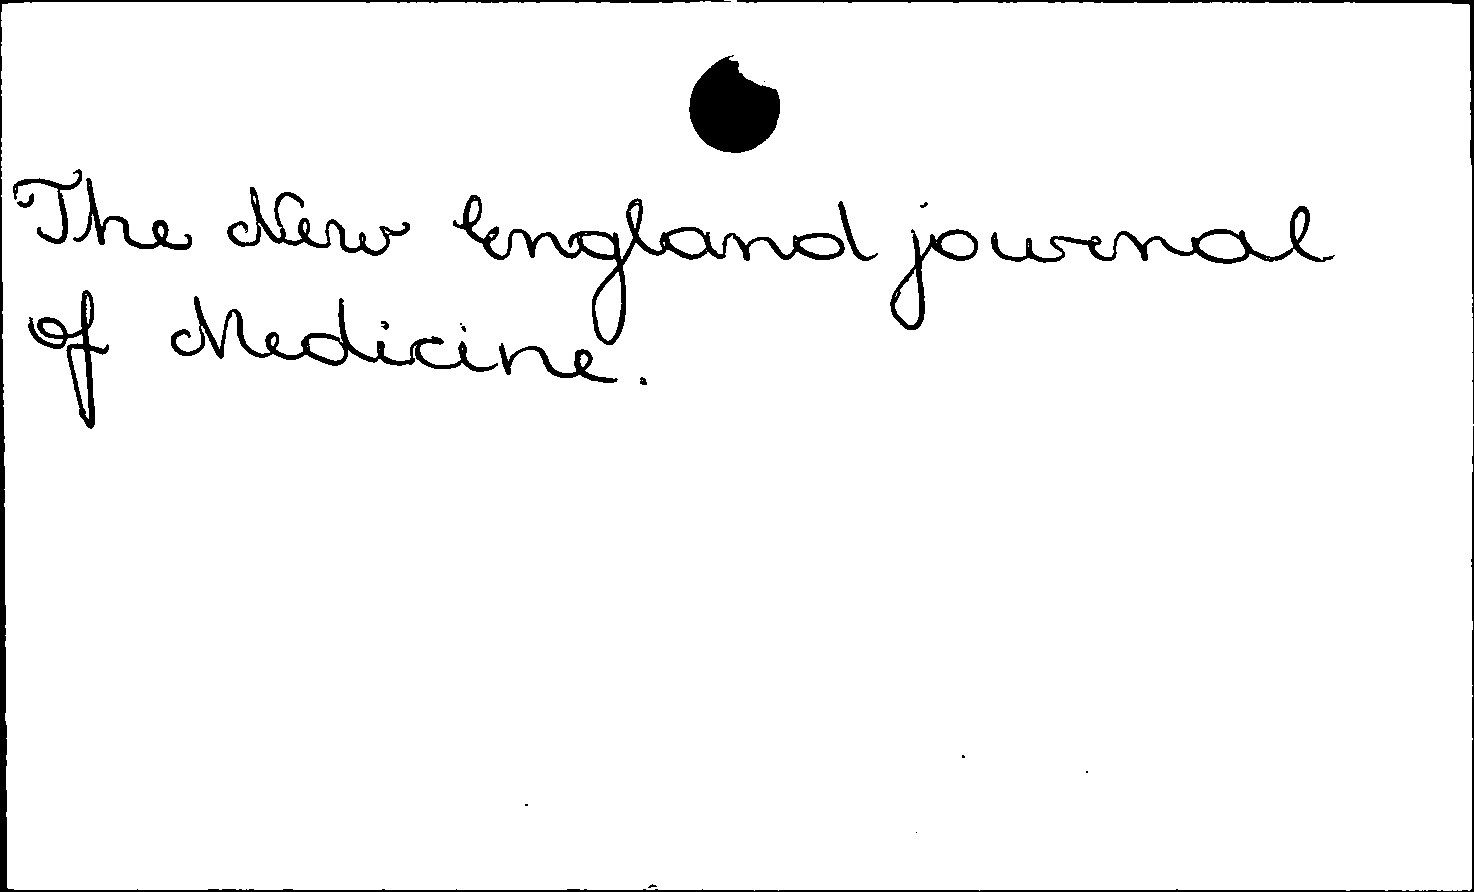 The New England journal
of Medicine.